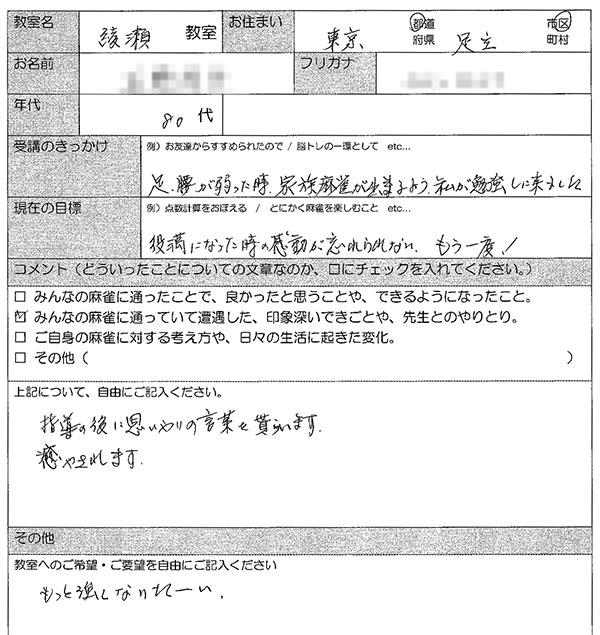 教室名 綾瀬 教室 お住まい 東京 都道府県 足立 市区町村
お名前 フリガナ
年代 80代
受講のきっかけ 例）お友達からすすめられたので / 脳トレの一環として etc...
足、腰が弱った時、家族麻雀が出来るよう、私が勉強しに来ました
現在の目標 例）点数計算をおぼえる / とにかく麻雀を楽しむこと etc...
役満になった時の感動が忘れられない、もう一度！
コメント（どういったことについての文章なのか、口にチェックを入れてください。）
□ みんなの麻雀に通ったことで、良かったと思うことや、できるようになったこと。
☑ みんなの麻雀に通っていて遭遇した、印象深いできごとや、先生とのやりとり。
□ ご自身の麻雀に対する考え方や、日々の生活に起きた変化。
□ その他（ ）
上記について、自由にご記入ください。
指導の後に思いやりの言葉を貰られます.
癒やされます.
その他
教室へのご希望・ご要望を自由にご記入ください
もっと強くなりたーい.